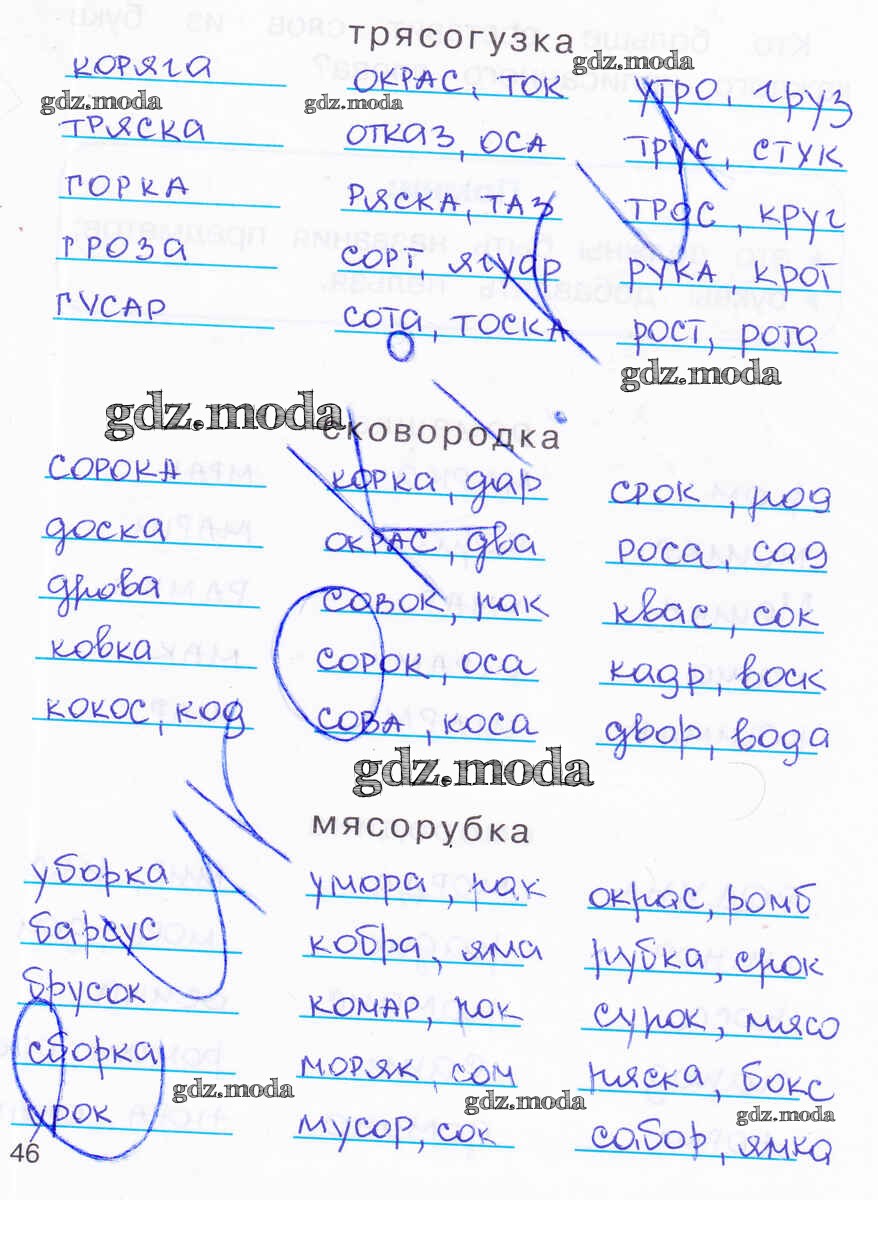 трясогузка
коряга
тряска
горка
гроза
гусар
окрас, ток
отказ, оса
ряска, таз
сорт, ягуар
сота, тоска
утро, груз
трус, стук
трос, круг
рука, крот
рост, рота
gdz.moda
gdz.moda
gdz.moda
gdz.moda
gdz.moda
сковородка
сорока
доска
дрова
ковка
кокос, код
корка, дар
окрас, два
совок, рак
сорок, оса
сова, коса
срок, род
роса, сад
квас, сок
кадр, воск
двор, вода
gdz.moda
мясорубка
уборка
барсус
брусок
сборка
урок
умора, рак
кобра, яма
комар, рок
моряк, сом
мусор, сок
окрас, ромб
рубка, срок
сурок, мясо
ряска, бокс
сабор, ямка
gdz.moda
gdz.moda
gdz.moda
46